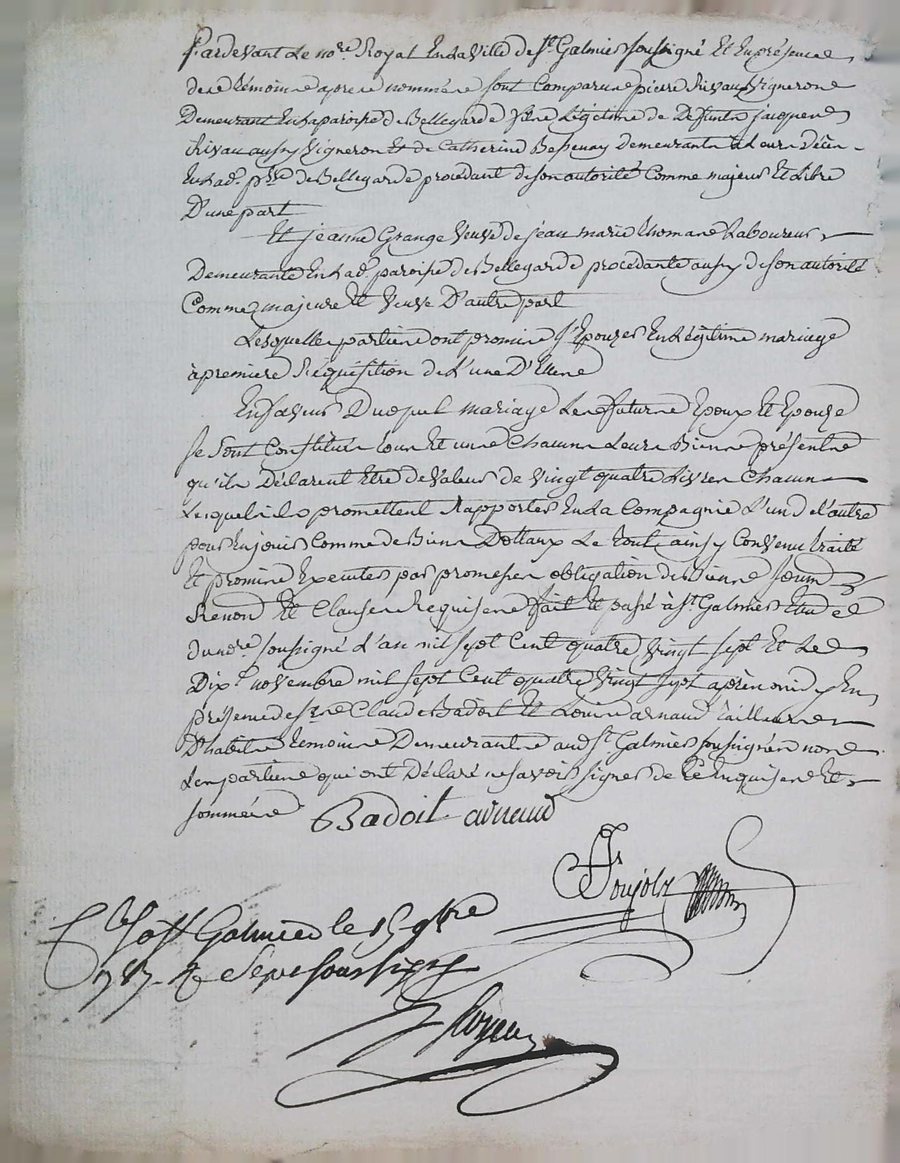 Pardevant Le no.re Royal En La Ville de St Galmier soussigné Et En présence
des témoins apres nommés sont Comparus pierre Rivaux Vigneron
Demeurant En La paroisse de Bellegarde fils Légitime de Defunts jacques
Rivau aussy Vigneron Et de Catherine Bessenay demeurants a Leurs décès
En Lad. p.sse de Bellegarde procedant de son autorité Comme majeur Et Libre
D'une part
Et jeanne Grange Veuve de jean marie thomas Laboureur
Demeurante En Lad. paroisse de Bellegarde procedante aussy de son autorité
Comme majeure Et Veuve D'autre part
Lesquelles parties ont promis s'Epouzer En Légitime mariage
à premiere Réquisition de L'une D'Elles
En faveur Duquel mariage Les futurs Epoux Et Epouze
se sont Constitués tous Et uns Chacuns Leurs Biens présents
qu'ils Déclarent Etre de Valeur de Vingt quatre Livres Chacun
Lesquels ils promettent Rapporter En La Compagnie L'un de L'autre
pour En jouir Comme de Biens Dottaux Le tout ainsy Convenu traité
Et promis Executer par promesses obligation de Biens
Renon.ons Et Clauses Requises fait Et passé à St Galmier Etude
du no.re soussigné L'an mil sept Cent quatre Vingt sept Et Le
Dix novembre mil sept Cent quatre Vingt sept après midy En
présence de Srs Claude Badoit Et Louis arnaud tailleurs
D'habits témoins Demeurants aud. St Galmier soussignés non
Les parties qui ont Déclaré ne savoir signer de Ce Enquises Et
sommées Badoit arnaud
Soujolx
C.lé à St Galmier le 15 9bre
1787. R. seize sous six d.